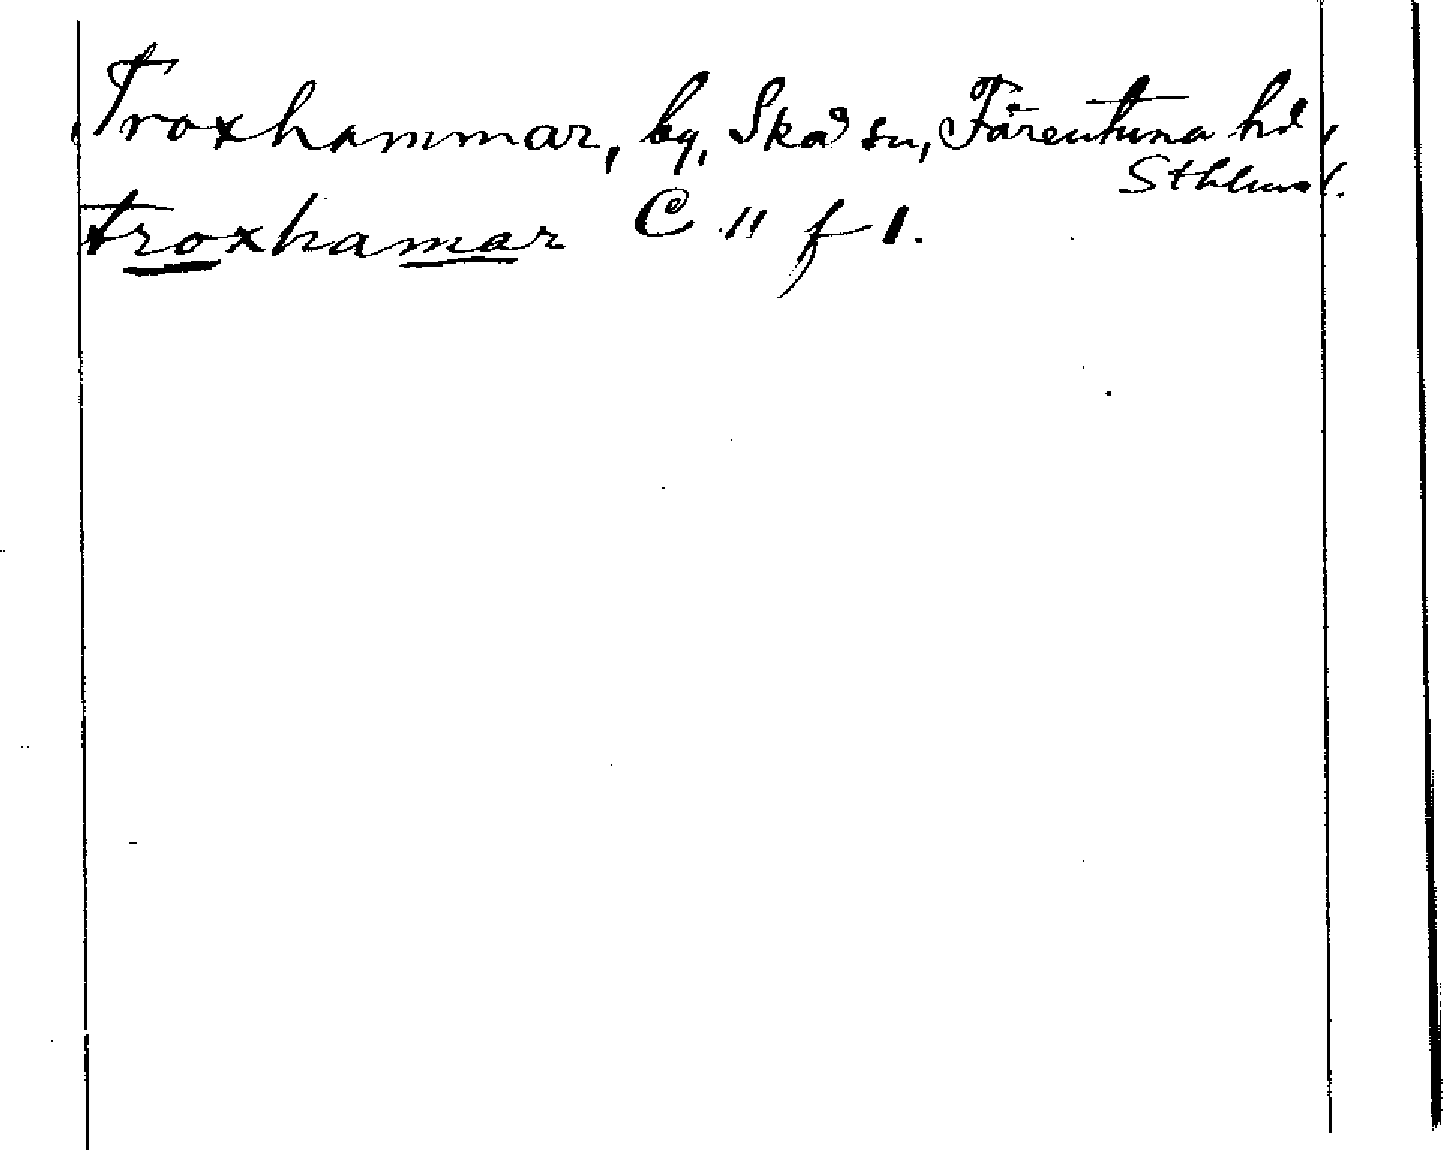 Troxhammar, by, Skå sn, Färentuna hd,
Sthlms l.
troxhamar C 11 f 1.